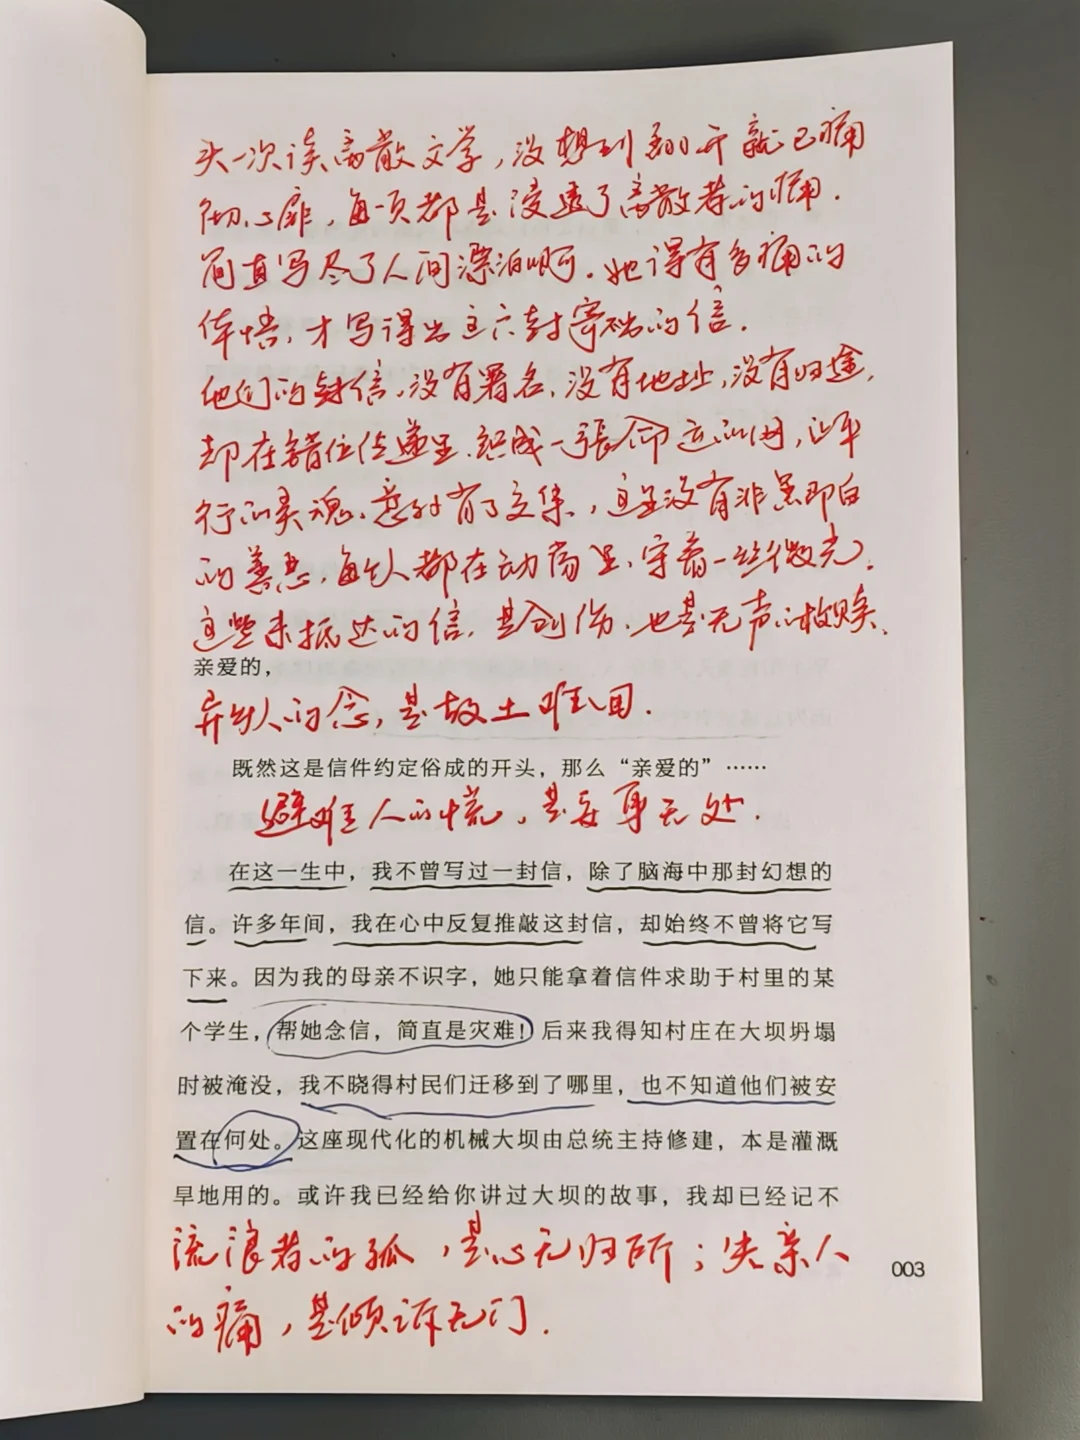 头一次读离散文学，没想到翻开就已痛
彻心扉，每一页都是浸透了离散者的痛.
简直写尽了人间漂泊啊.她得有多痛的
体悟,才写得出这六封寄出的信.
他们的封信,没有署名,没有地址,没有归途,
却在错位传递里.织成一张命运的网,让平
行的灵魂.意外有了交集，这里没有非黑即白
的善恶,每个人都在动荡里、守着一丝微光.
这些未抵达的信,是创伤.也是无声的救赎.
亲爱的，
异乡人的念，是故土难回.
既然这是信件约定俗成的开头，那么“亲爱的”……
避难人的慌，是安身无处.
在这一生中，我不曾写过一封信，除了脑海中那封幻想的
信。许多年间，我在心中反复推敲这封信，却始终不曾将它写
下来。因为我的母亲不识字，她只能拿着信件求助于村里的某
个学生，帮她念信，简直是灾难！后来我得知村庄在大坝坍塌
时被淹没，我不晓得村民们迁移到了哪里，也不知道他们被安
置在何处。这座现代化的机械大坝由总统主持修建，本是灌溉
旱地用的。或许我已经给你讲过大坝的故事，我却已经记不
流浪者的孤，是心无归所；失亲人
的痛，是倾诉无门.
003